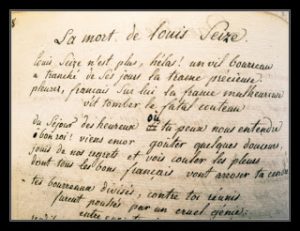 La mort de Louis Seize.
Louis Seize n'est plus, hélas! un vil bourreau
a tranché de ses jours la trame précieuse
pleurez, français sur lui la france malheureuse
vit tomber le fatal couteau
ou
du séjour des heureux tu peux nous entendre
ô bon roi! viens encor goûter quelques douceurs,
jouis de nos regrets et vois couler les pleurs
dont tous les bons français vont arroser ta cendre
tes bourreaux divisés, contre toi réunis
furent poussés par un cruel génie:
entre